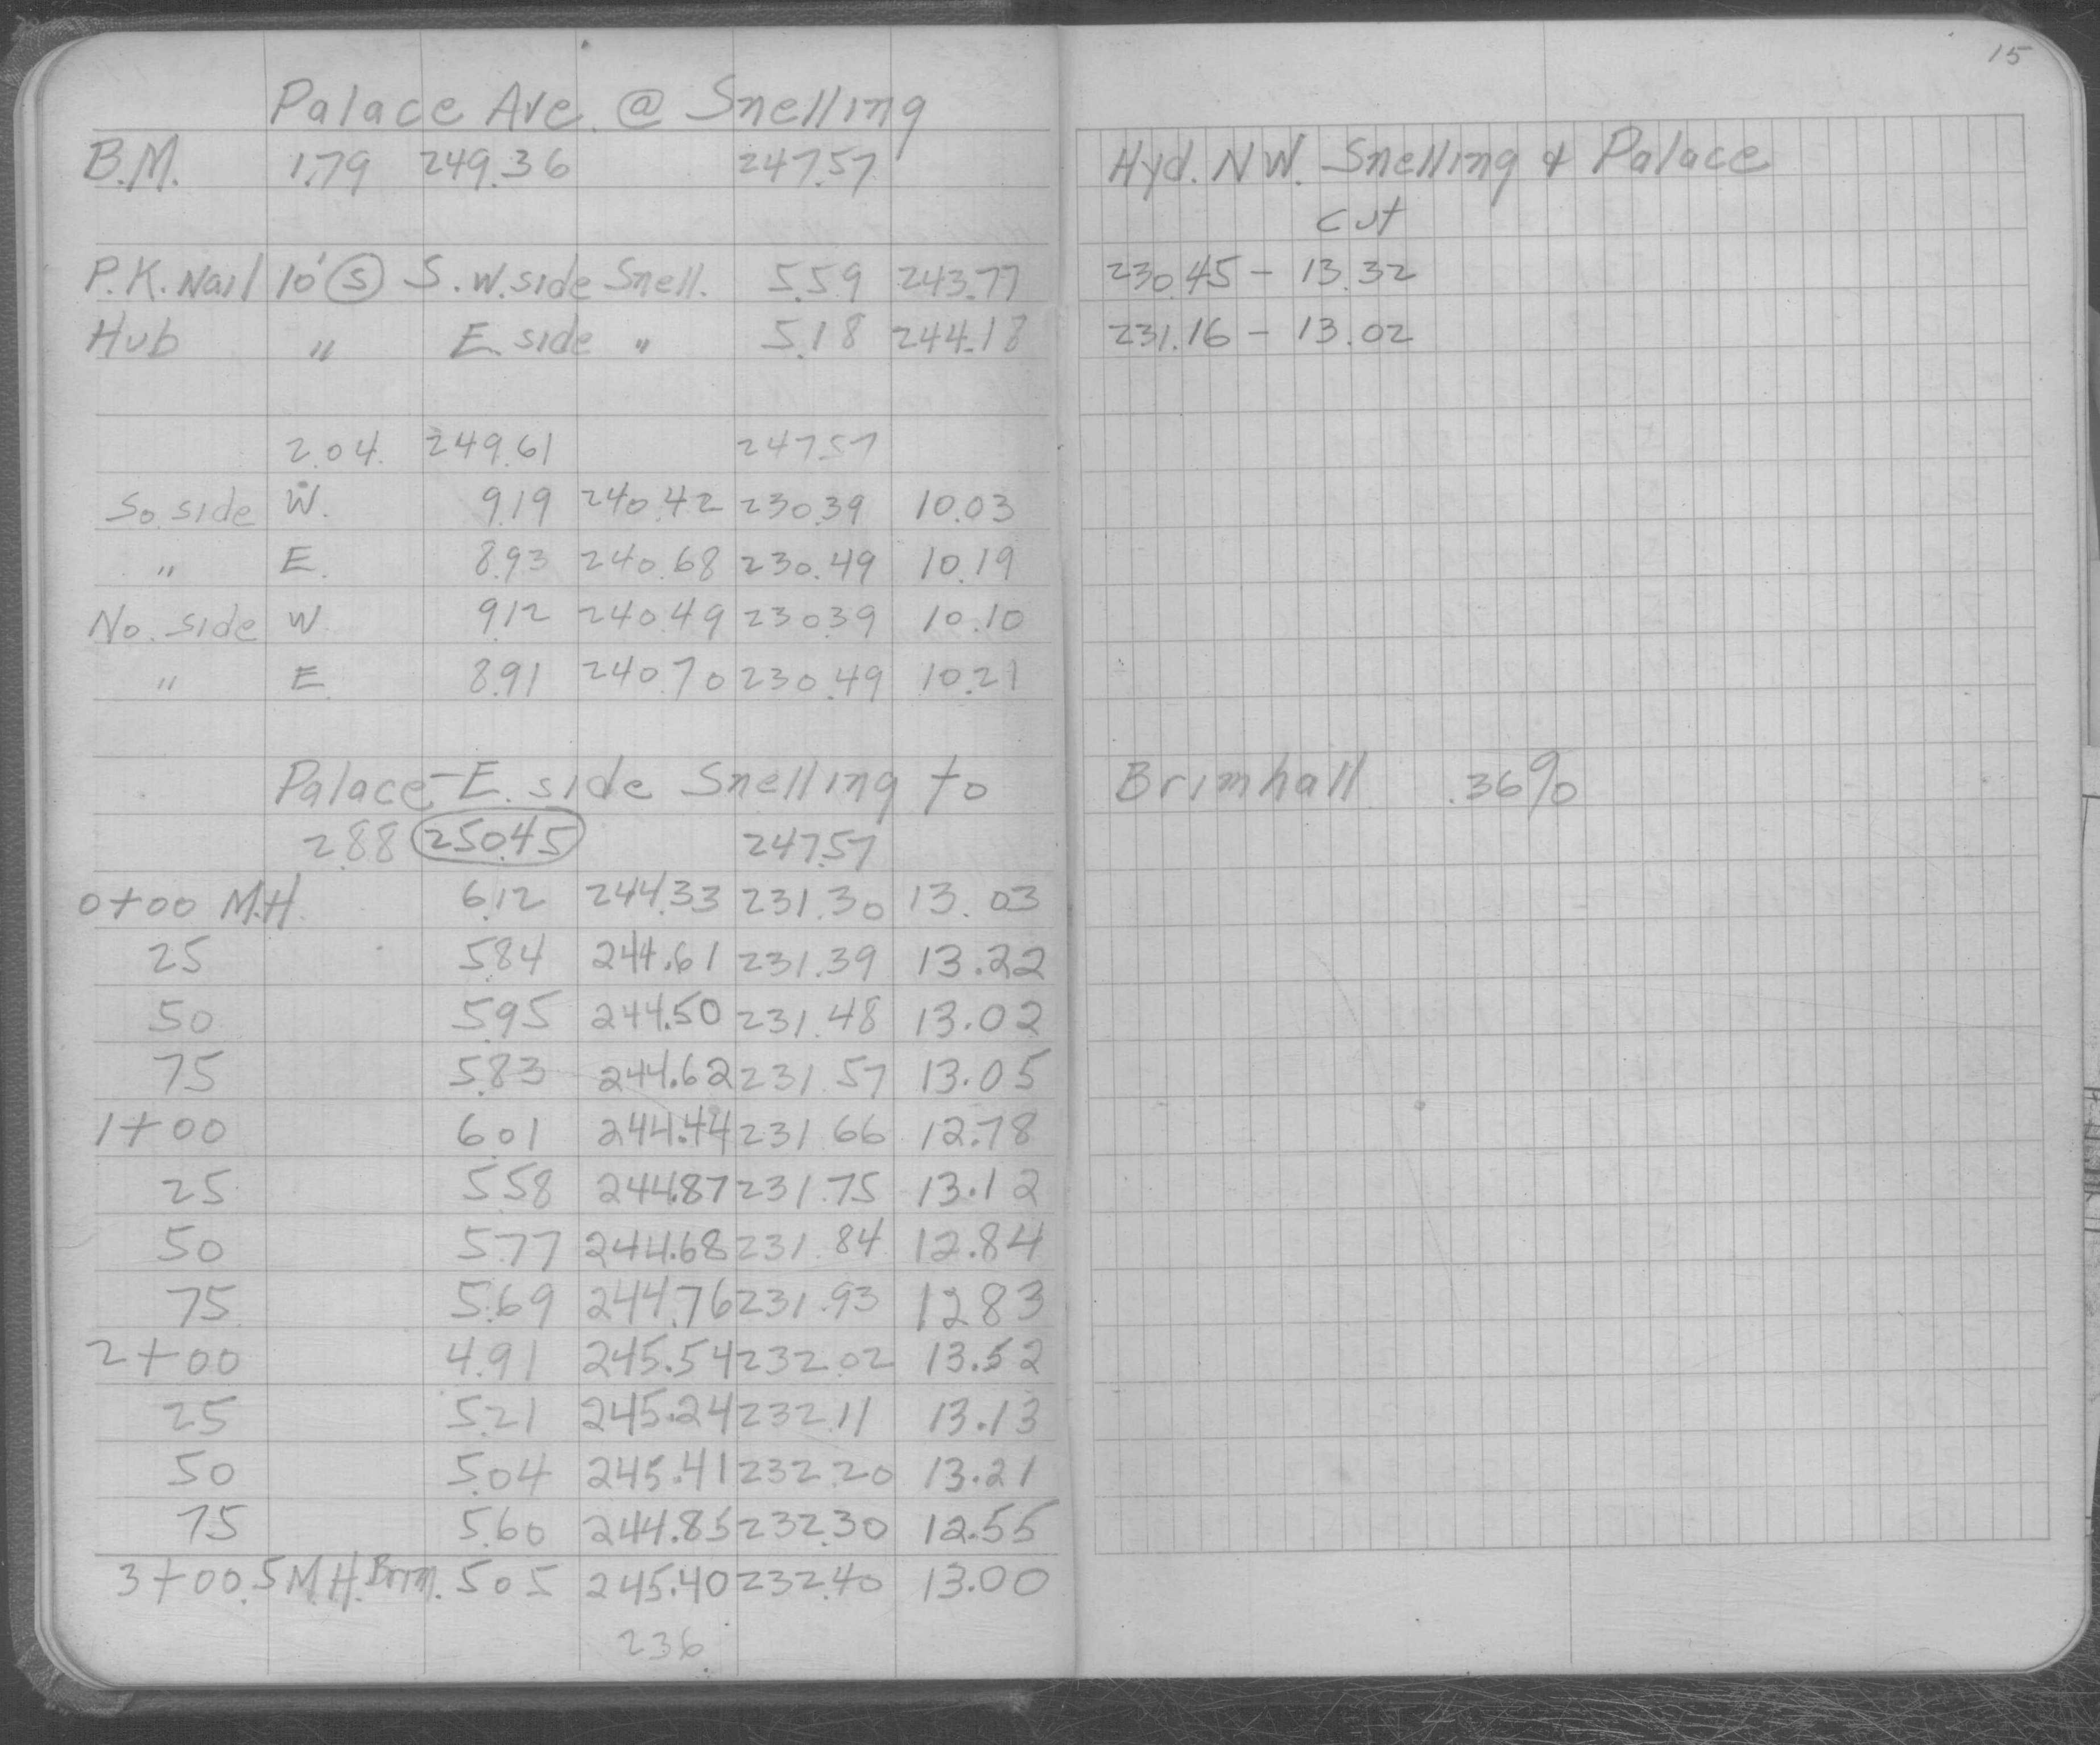 15
Palace Ave. @ Snelling
B.M. 1.79 249.36 247.57
P.K. Nail 10' S S. W. side Snell. 5.59 243.77
Hub " E. side " 5.18 244.18
2.04 249.61 247.57
So. side W. 9.19 240.42 230.39 10.03
" E. 8.93 240.68 230.49 10.19
No. side W. 9.12 240.49 230.39 10.10
" E. 8.91 240.70 230.49 10.21
Palace - E. side Snelling to
2.88 250.45 247.57
0+00 M.H. 6.12 244.33 231.30 13.03
25 5.84 244.61 231.39 13.22
50 5.95 244.50 231.48 13.02
75 5.83 244.62 231.57 13.05
1+00 6.01 244.44 231.66 12.78
25 5.58 244.87 231.75 13.12
50 5.77 244.68 231.84 12.84
75 5.69 244.76 231.93 12 83
2+00 4.91 245.54 232.02 13.52
25 5.21 245.24 232.11 13.13
50 5.04 245.41 232.20 13.21
75 5.60 244.85 232.30 12.55
3+00.5 M.H. Brim. 5.05 245.40 232.40 13.00
236
Hyd. N W. Snelling & Palace
cut
230.45 - 13.32
231.16 - 13.02
Brimhall .36%